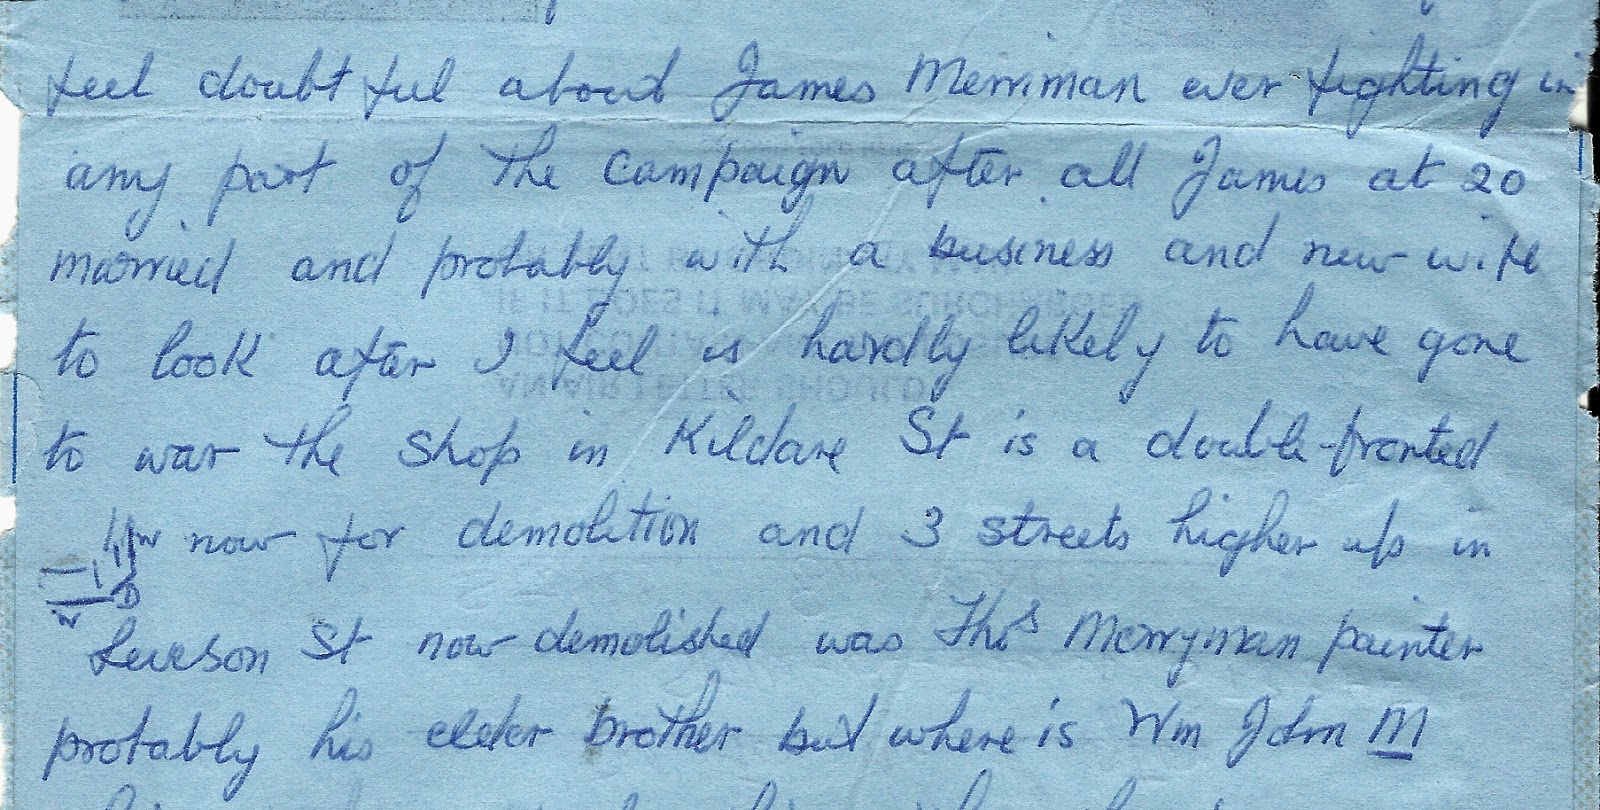 feel doubtful about James Merriman ever fighting in
any part of the campaign after all James at 20
married and probably with a business and new wife
to look after I feel is hardly likely to have gone
to war the shop in Kildare St is a double-fronted
now for demolition and 3 streets higher up in
Leveson St now demolished was Thos Merryman painter
probably his elder brother but where is Wm John M